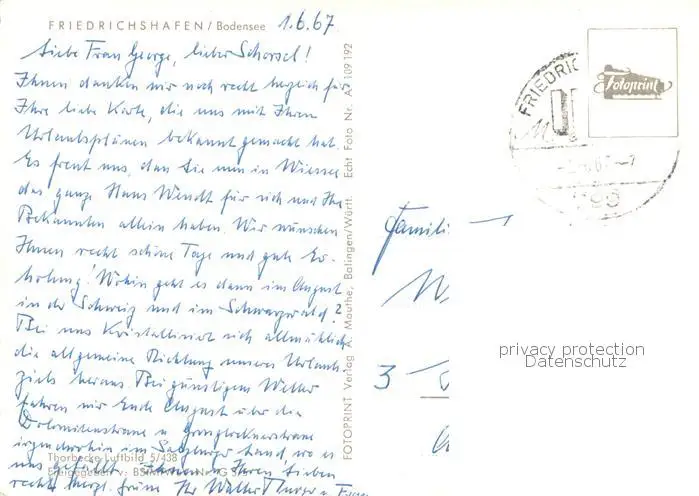 FRIEDRICHSHAFEN / Bodensee 1.6.67
Liebe Frau George, lieber Schorsel!
Ihnen danken wir noch recht herzlich für
Ihre liebe Karte, die uns mit Ihren
Urlaubsplänen bekannt gemacht hat.
Es freut uns, dass Sie nun in Wiessee
das ganze Haus Wendt für sich und Ihre
Bekannten allein haben. Wir wünschen
Ihnen recht schöne Tage und gute Er-
holung! Wohin geht es dann im August
in der Schweiz und im Schwarzwald?
Bei uns kristallisiert sich allmählich
die allgemeine Richtung unseres Urlaubs-
ziels heraus. Bei günstigem Wetter
fahren wir Ende August über die
Dolomitenstrasse u. Grossglocknerstrasse
irgendwohin im Salzburger Land, wo es
uns gefällt. Ihnen u. Ihren Lieben
recht herzl. Grüsse Ihr Walter
Thorbecke-Luftbild 5/438
Freigegeben v.
FOTOPRINT Verlag A. Mauthe, Balingen/Württ. Echt Foto Nr. A 5 109 192
FRIEDRIC
Fotoprint
799
Famili
W
3
privacy protection
Datenschutz